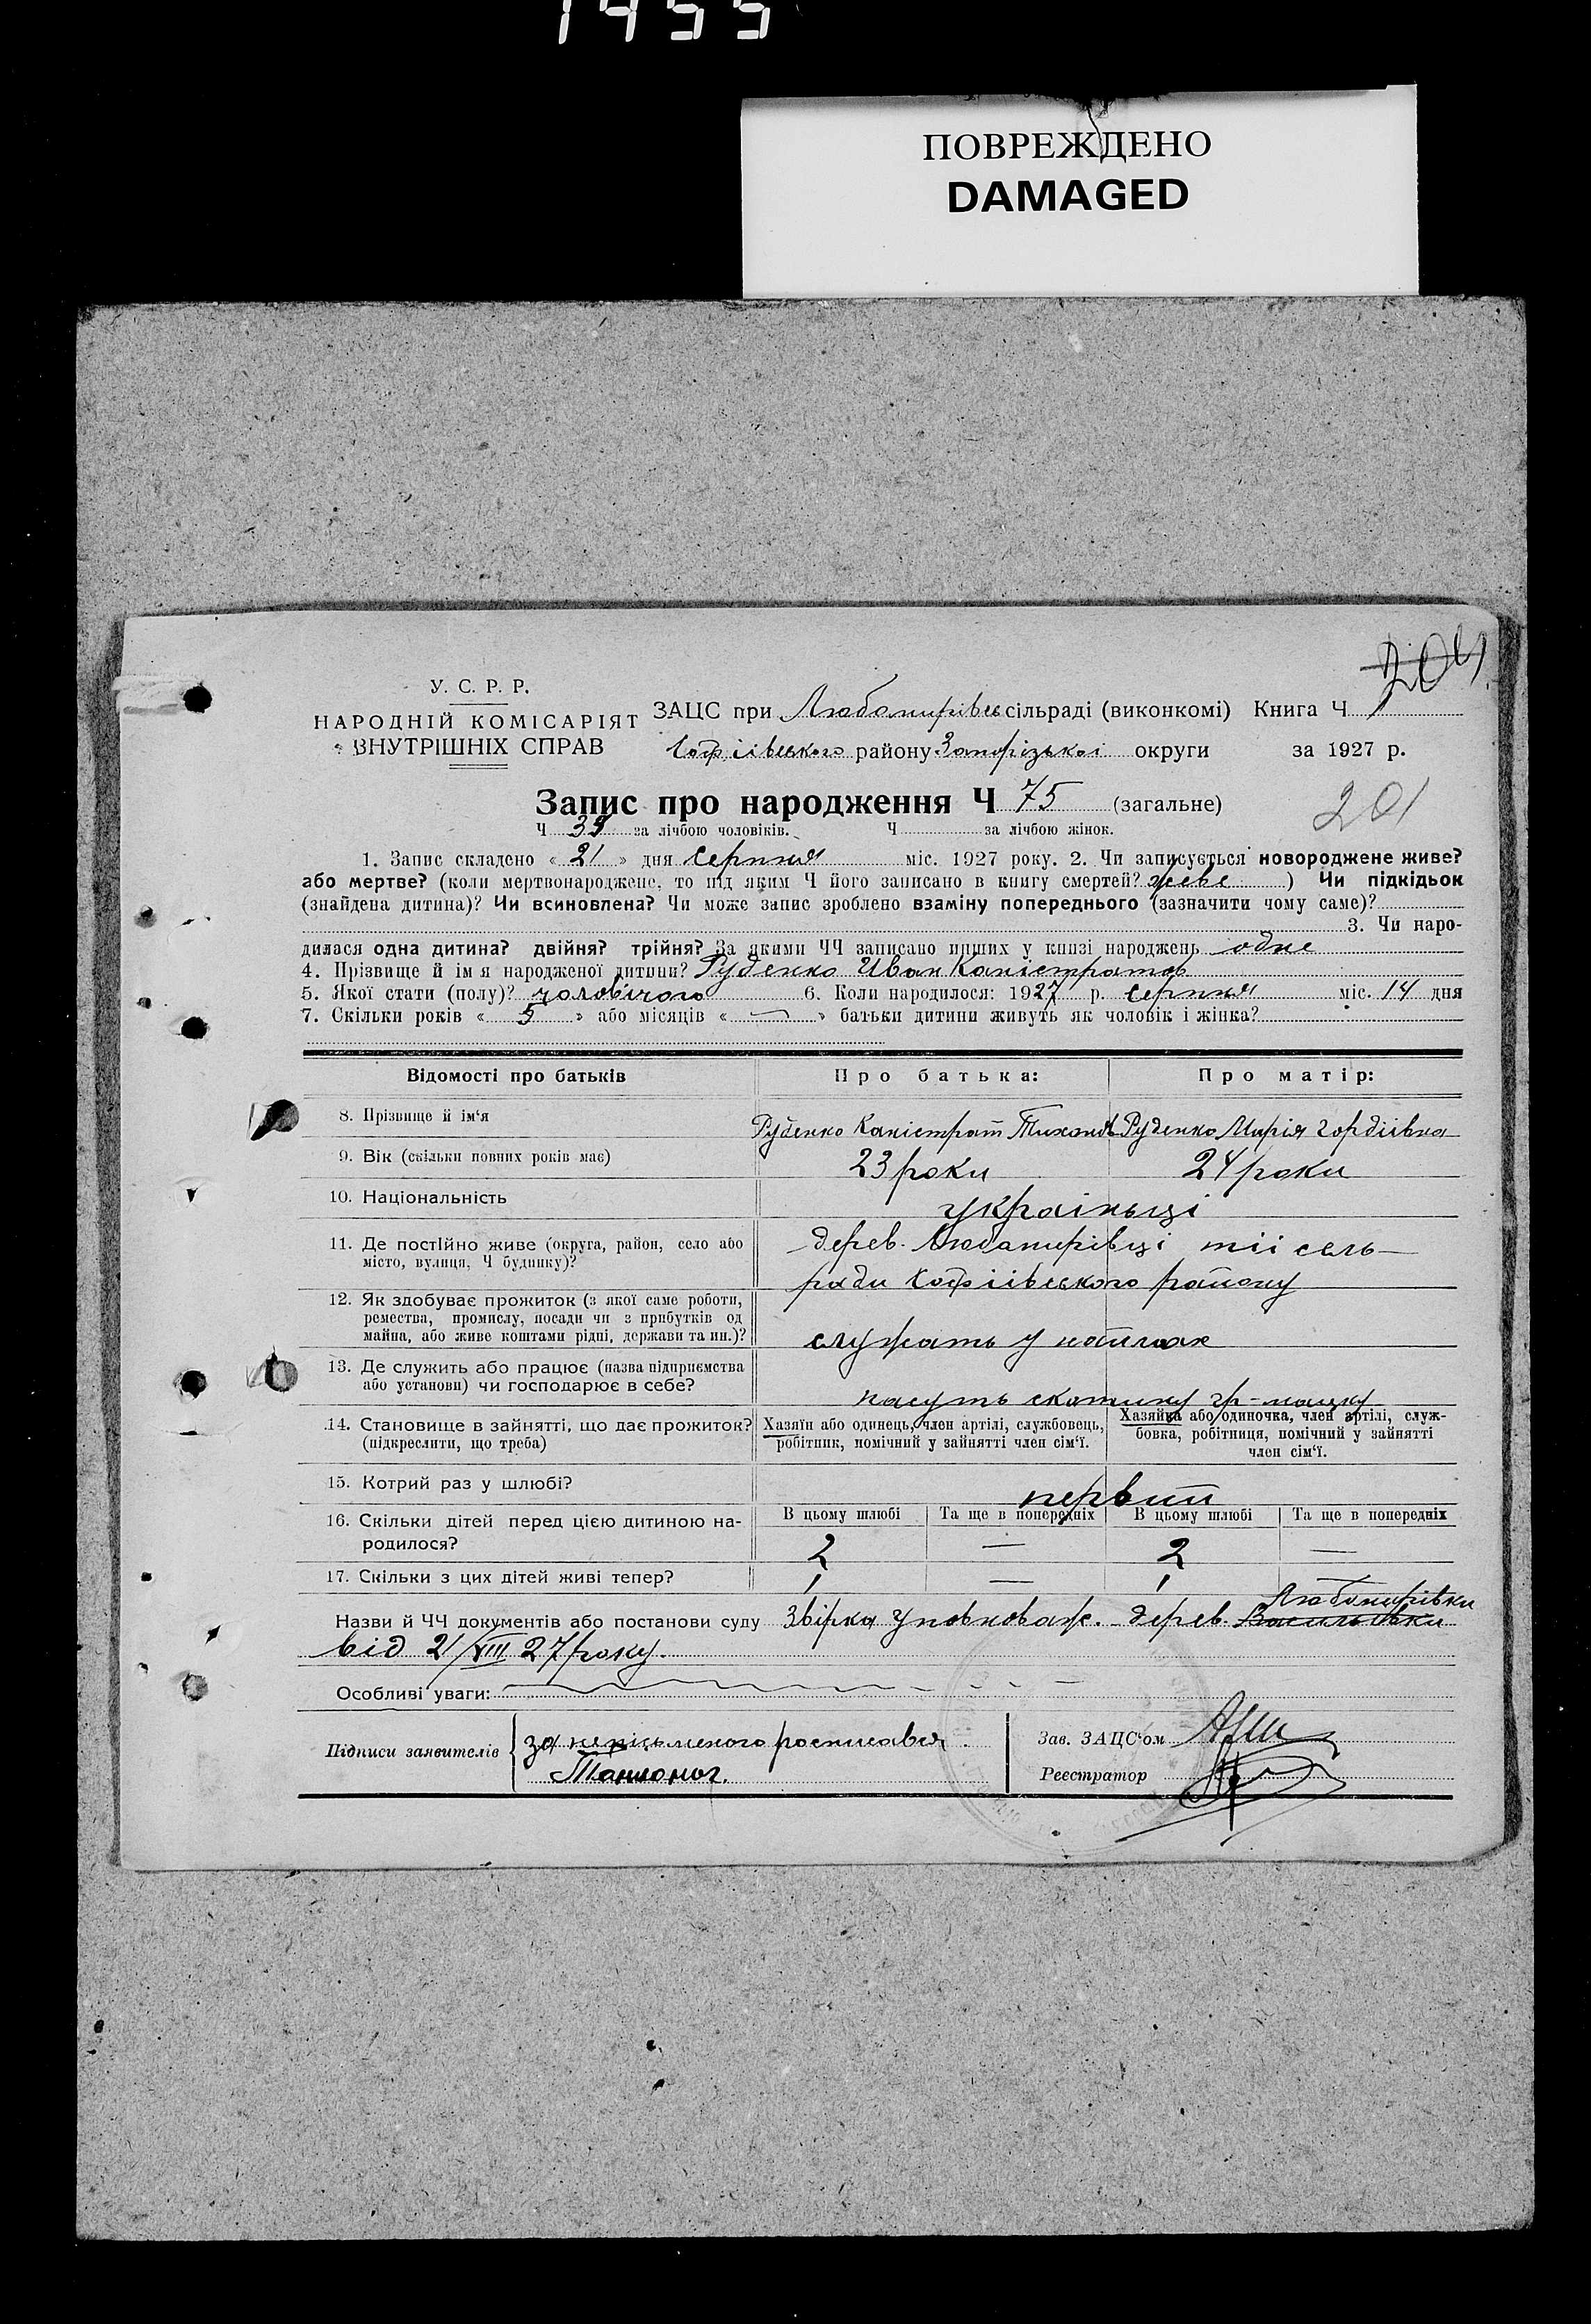 1455
ПОВРЕЖДЕНО
DAMAGED
204
У. С. Р. Р.
НАРОДНІЙ КОМІСАРІЯТ
ВНУТРІШНІХ СПРАВ
ЗАЦС при Любомирівсь сільраді (виконкомі) Книга Ч
Софіївського району Запорізької округи за 1927 р.
Запис про народження Ч 75 (загальне)
201
Ч 39 за лічбою чоловіків. Ч за лічбою жінок.
1. Запис складено « 21 » дня Серпня міс. 1927 року. 2. Чи записується новороджене живе?
або мертве? (коли мертвонароджене, то під яким Ч його записано в книгу смертей? живе ) Чи підкідьок
(знайдена дитина)? Чи всиновлена? Чи може запис зроблено взаміну попереднього (зазначити чому саме)?
3. Чи наро-
дилася одна дитина? двійня? трійня? За якими ЧЧ записано инших у книзі народжень одне
4. Прізвище й ім я народженої дитини? Руденко Иван Каністратов
5. Якої стати (полу)? чоловічого 6. Коли народилося: 1927 р. Серпня міс. 14 дня
7. Скільки років « 5 » або місяців « — » батьки дитини живуть як чоловік і жінка?
Відомості про батьків Про батька: Про матір:
8. Прізвище й ім'я Руденко Каністрат Тихонов Руденко Марія Гордіївна
9. Вік (скільки повних років має) 23 роки 24 роки
10. Національність україньці
11. Де постійно живе (округа, район, село або
місто, вулиця, Ч будинку)?
дерев. Любомирівці тії сель-
ради Софіївського району
12. Як здобуває прожиток (з якої саме роботи,
ремества, промислу, посади чи з прибутків од
майна, або живе коштами рідні, держави та ин.)?
служать у наймах
13. Де служить або працює (назва підприємства
або установи) чи господарює в себе?
пасуть скотину
14. Становище в зайнятті, що дає прожиток?
(підкреслити, що треба)
Хазяїн або одинець, член артілі, службовець,
робітник, помічний у зайнятті член сім'ї.
Хазяйка або одиночка, член артілі, служ-
бовка, робітниця, помічний у зайнятті
член сім'ї.
15. Котрий раз у шлюбі? первий
16. Скільки дітей перед цією дитиною на-
родилося?
В цьому шлюбі Та ще в попередніх В цьому шлюбі Та ще в попередніх
2 — 2 —
17. Скільки з цих дітей живі тепер? 1 — 1 —
Любомирівки
Назви й ЧЧ документів або постанови суду Звірка уповноваж. дерев. Васильовки
від 21/VIII 27 року.
Особливі уваги:
Підписи заявителів за неписьменого росписався
Зав. ЗАЦС'ом
Реєстратор